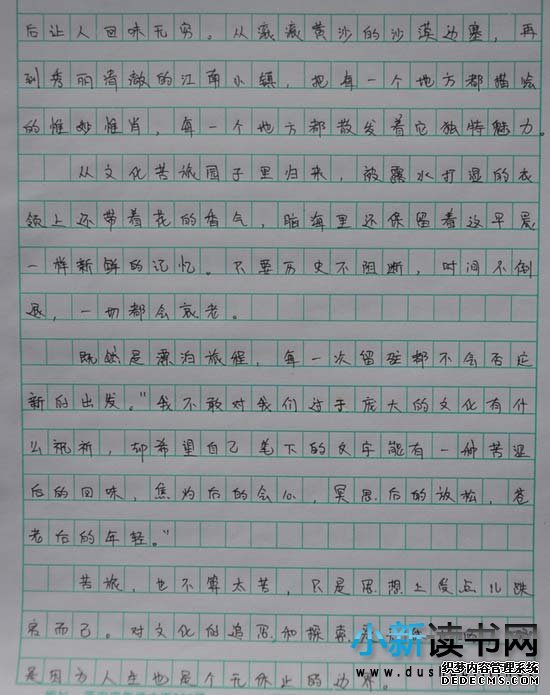 后让人回味无穷。从滚滚黄沙的沙漠边塞，再
到秀丽清澈的江南小镇，把每一个地方都描绘
的惟妙惟肖，每一个地方都散发着它独特魅力。
从文化苦旅园子里归来，被露水打湿的衣
领上还带着花的香气，脑海里还保留着这早晨
一样新鲜的记忆。只要历史不阻断，时间不倒
退，一切都会衰老。
既然是漂泊旅程，每一次留驻都不会否定
新的出发。"我不敢对我们过于庞大的文化有什
么祝祈，却希望自己笔下的文字能有一种苦涩
后的回味，焦灼后的会心，冥思后的放松，苍
老后的年轻。"
苦旅，也不算太苦，只是思想上受点儿跌
宕而已。对文化的追思和探索
是因为人生也是个无休止的边
小新读书网
www.dus
织梦内容管理系统
DEDECMS.COM